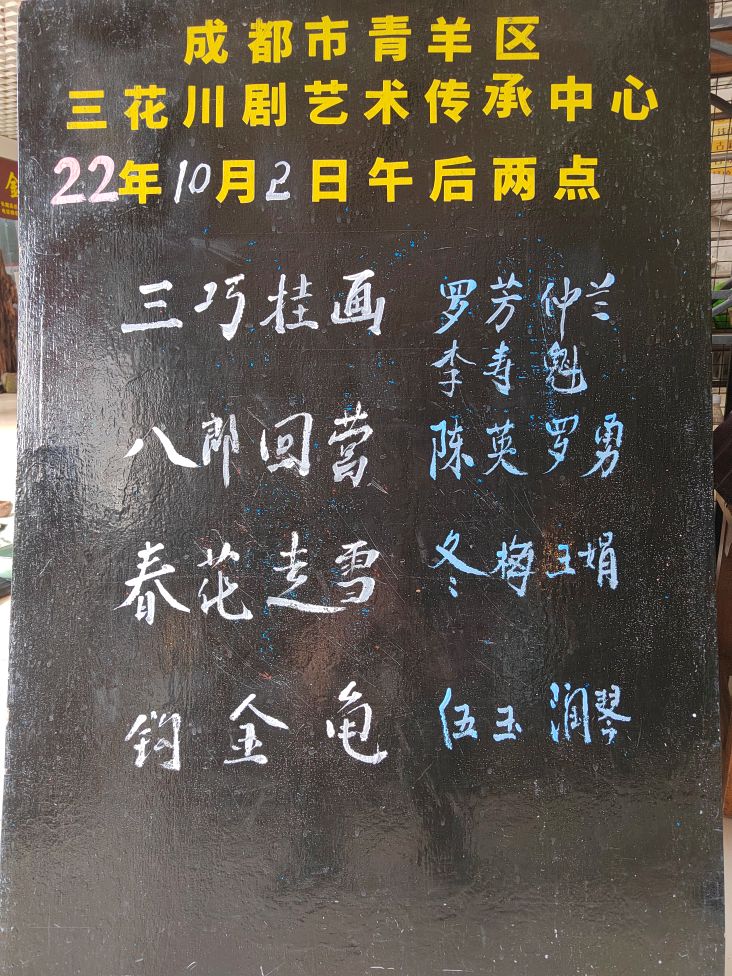 成都市青羊区
三花川剧艺术传承中心
22年10月2日午后两点
三巧挂画 罗芳 仲兰
李寿魁
八郎回营 陈英 罗勇
春花走雪 冬梅 王娟
钓金龟 伍玉 润琴